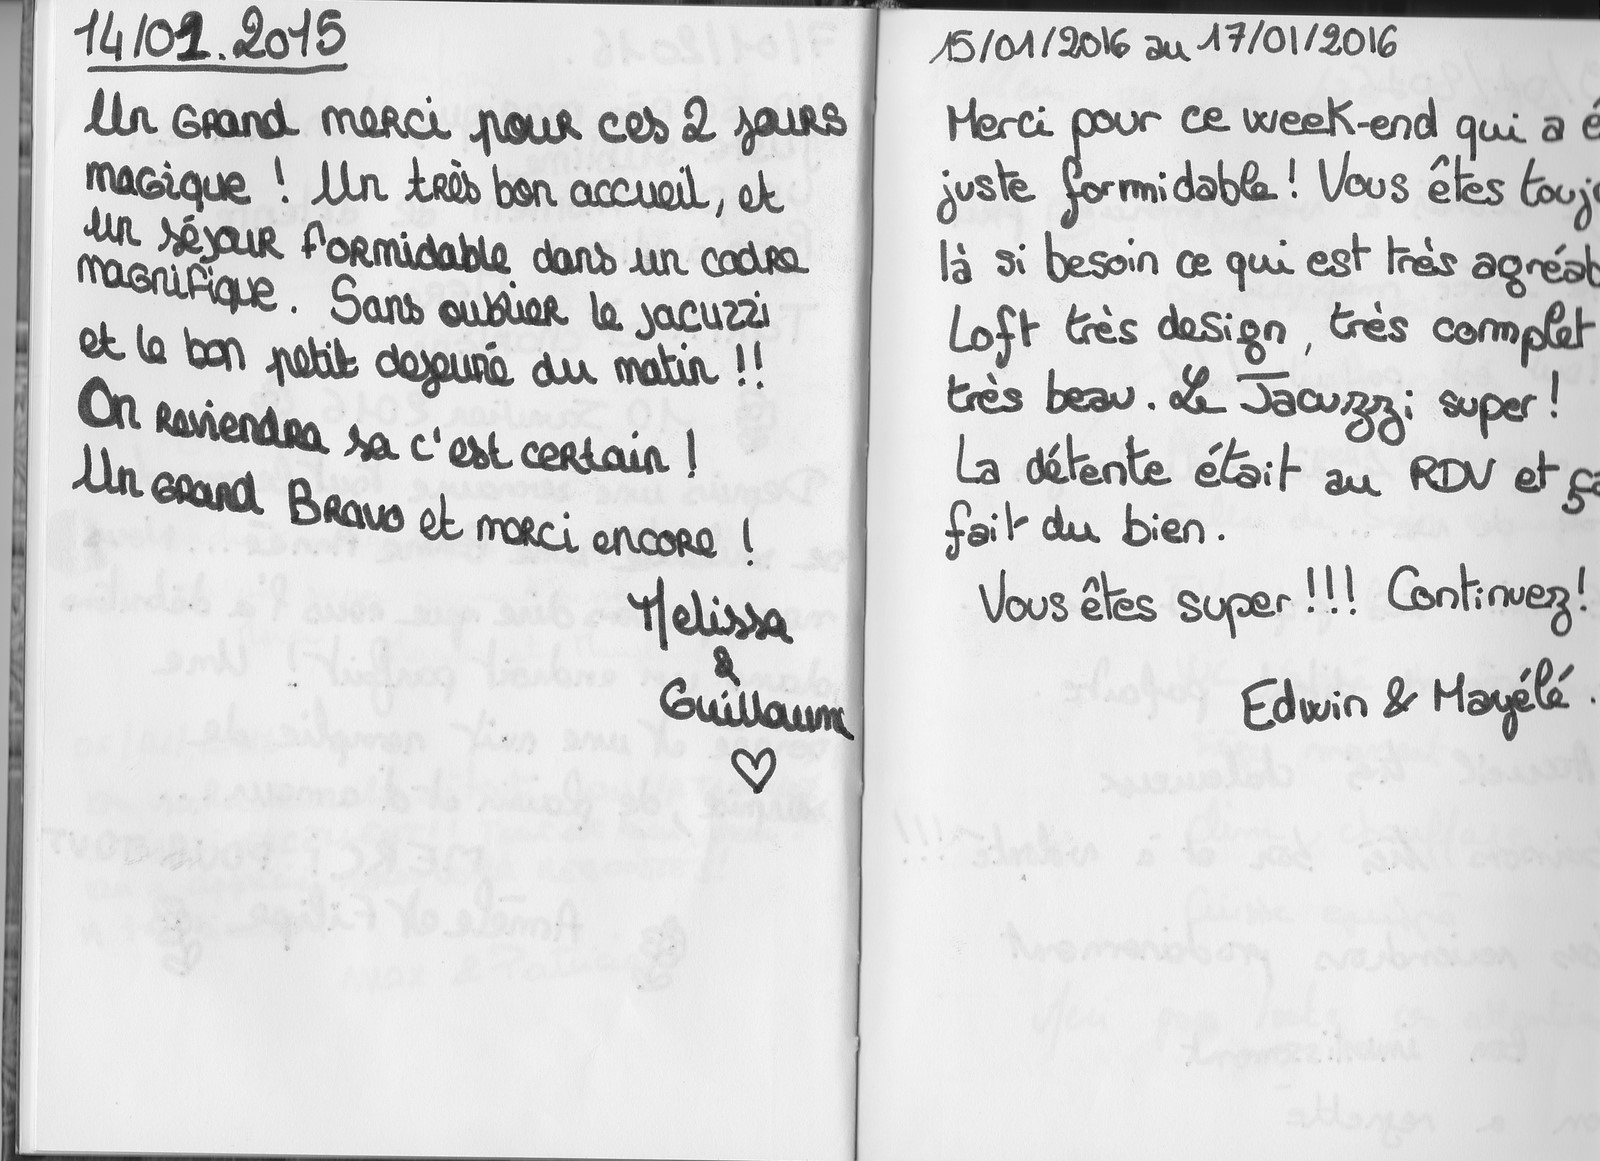 14/01.2015
Un GRAND merci pour ces 2 jours
magique ! Un très bon accueil, et
un séjour formidable dans un cadre
magnifique. Sans oublier le jacuzzi
et le bon petit dejeuné du matin !!
On Reviendra sa c'est certain !
Un GRAND BRavo et merci encore !
Melissa
&
Guillaume
15/01/2016 au 17/01/2016
Merci pour ce week-end qui a é
juste formidable ! Vous êtes touj
là si besoin ce qui est très agréab
Loft très design, très complet
très beau. Le Jacuzzi super !
La détente était au RDV et ça
fait du bien.
Vous êtes super !!! Continuez !
Edwin & Mayélé.